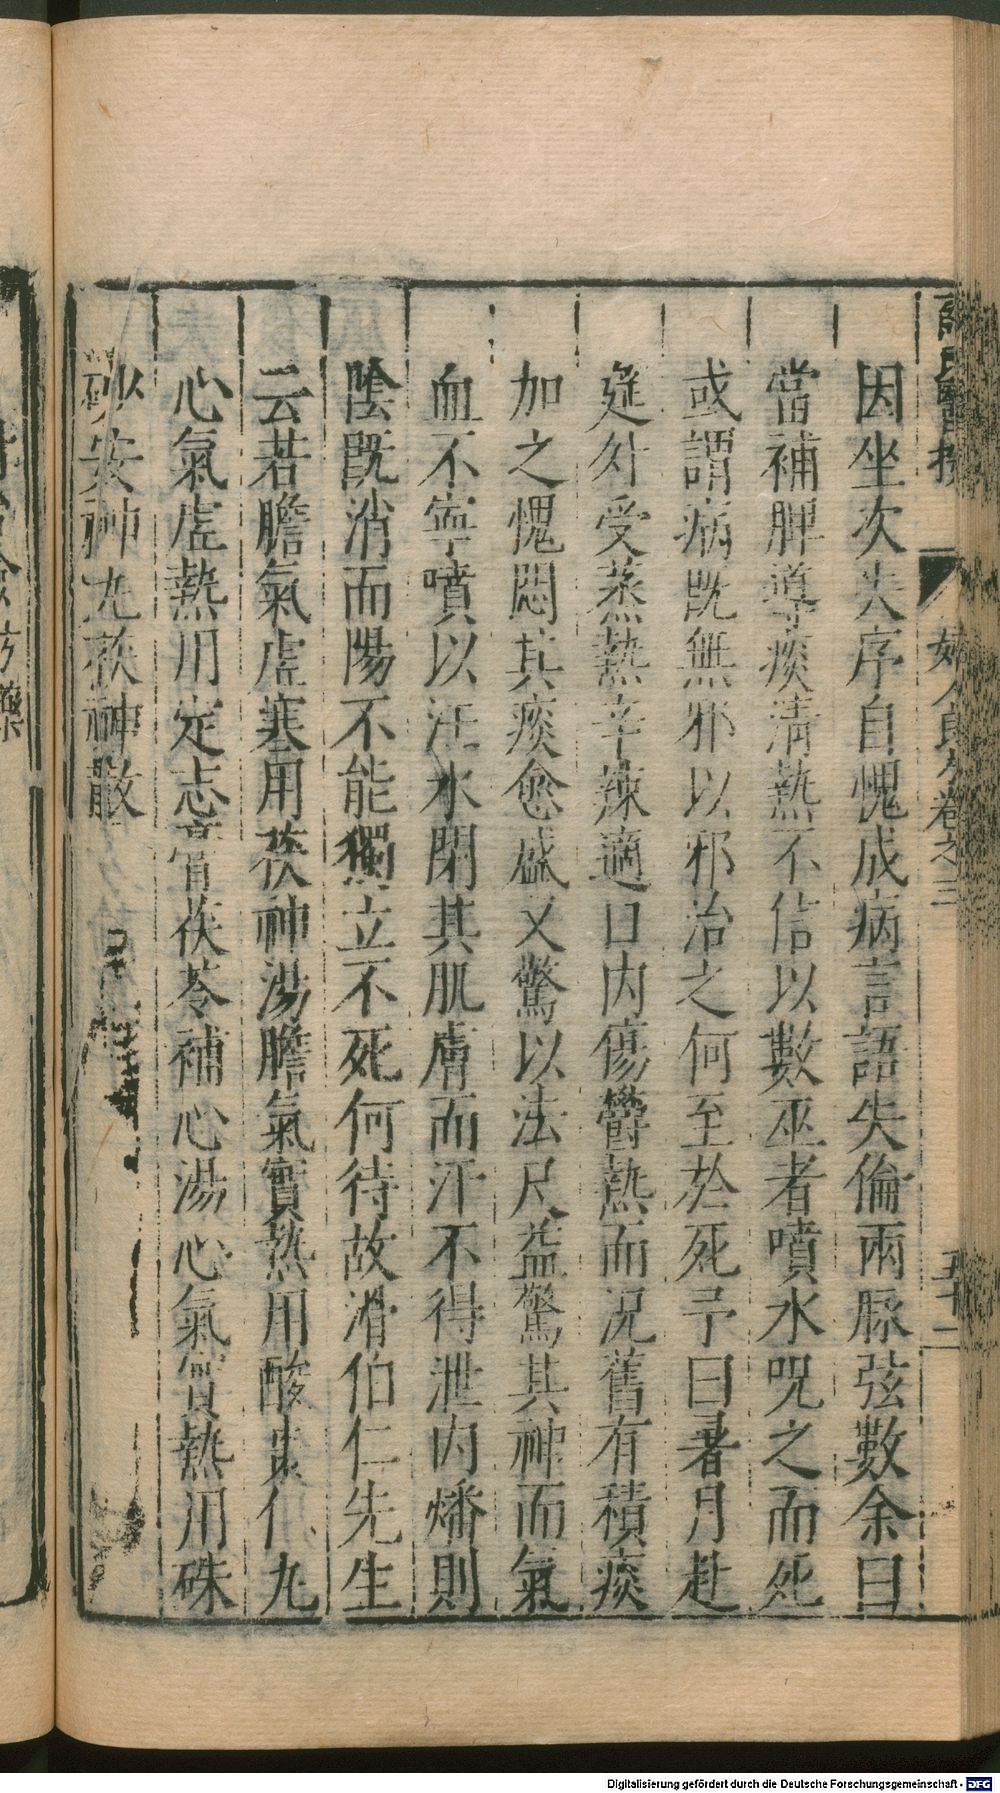 因坐次失序自愧成病言語失倫兩脉弦數余曰
當補脾導痰清熱不信以數巫者噴水呪之而死
或謂病既無邪以邪治之何至於死予曰暑月赴
筵外受蒸熱辛辣適口內傷欝熱而况舊有積痰
加之愧悶其痰愈盛又驚以法尺益驚其神而氣
血不寧噴以法水閉其肌膚而汗不得泄內燔則
陰既消而陽不能獨立不死何待故滑伯仁先生
云若膽氣虛寒用茯神湯膽氣實熱用酸棗仁丸
心氣虛熱用定志膏茯苓補心湯心氣實熱用硃
砂安神丸茯神散
婦人良方卷之三
五十二
方藥
Digitalisierung gefördert durch die Deutsche Forschungsgemeinschaft - DFG